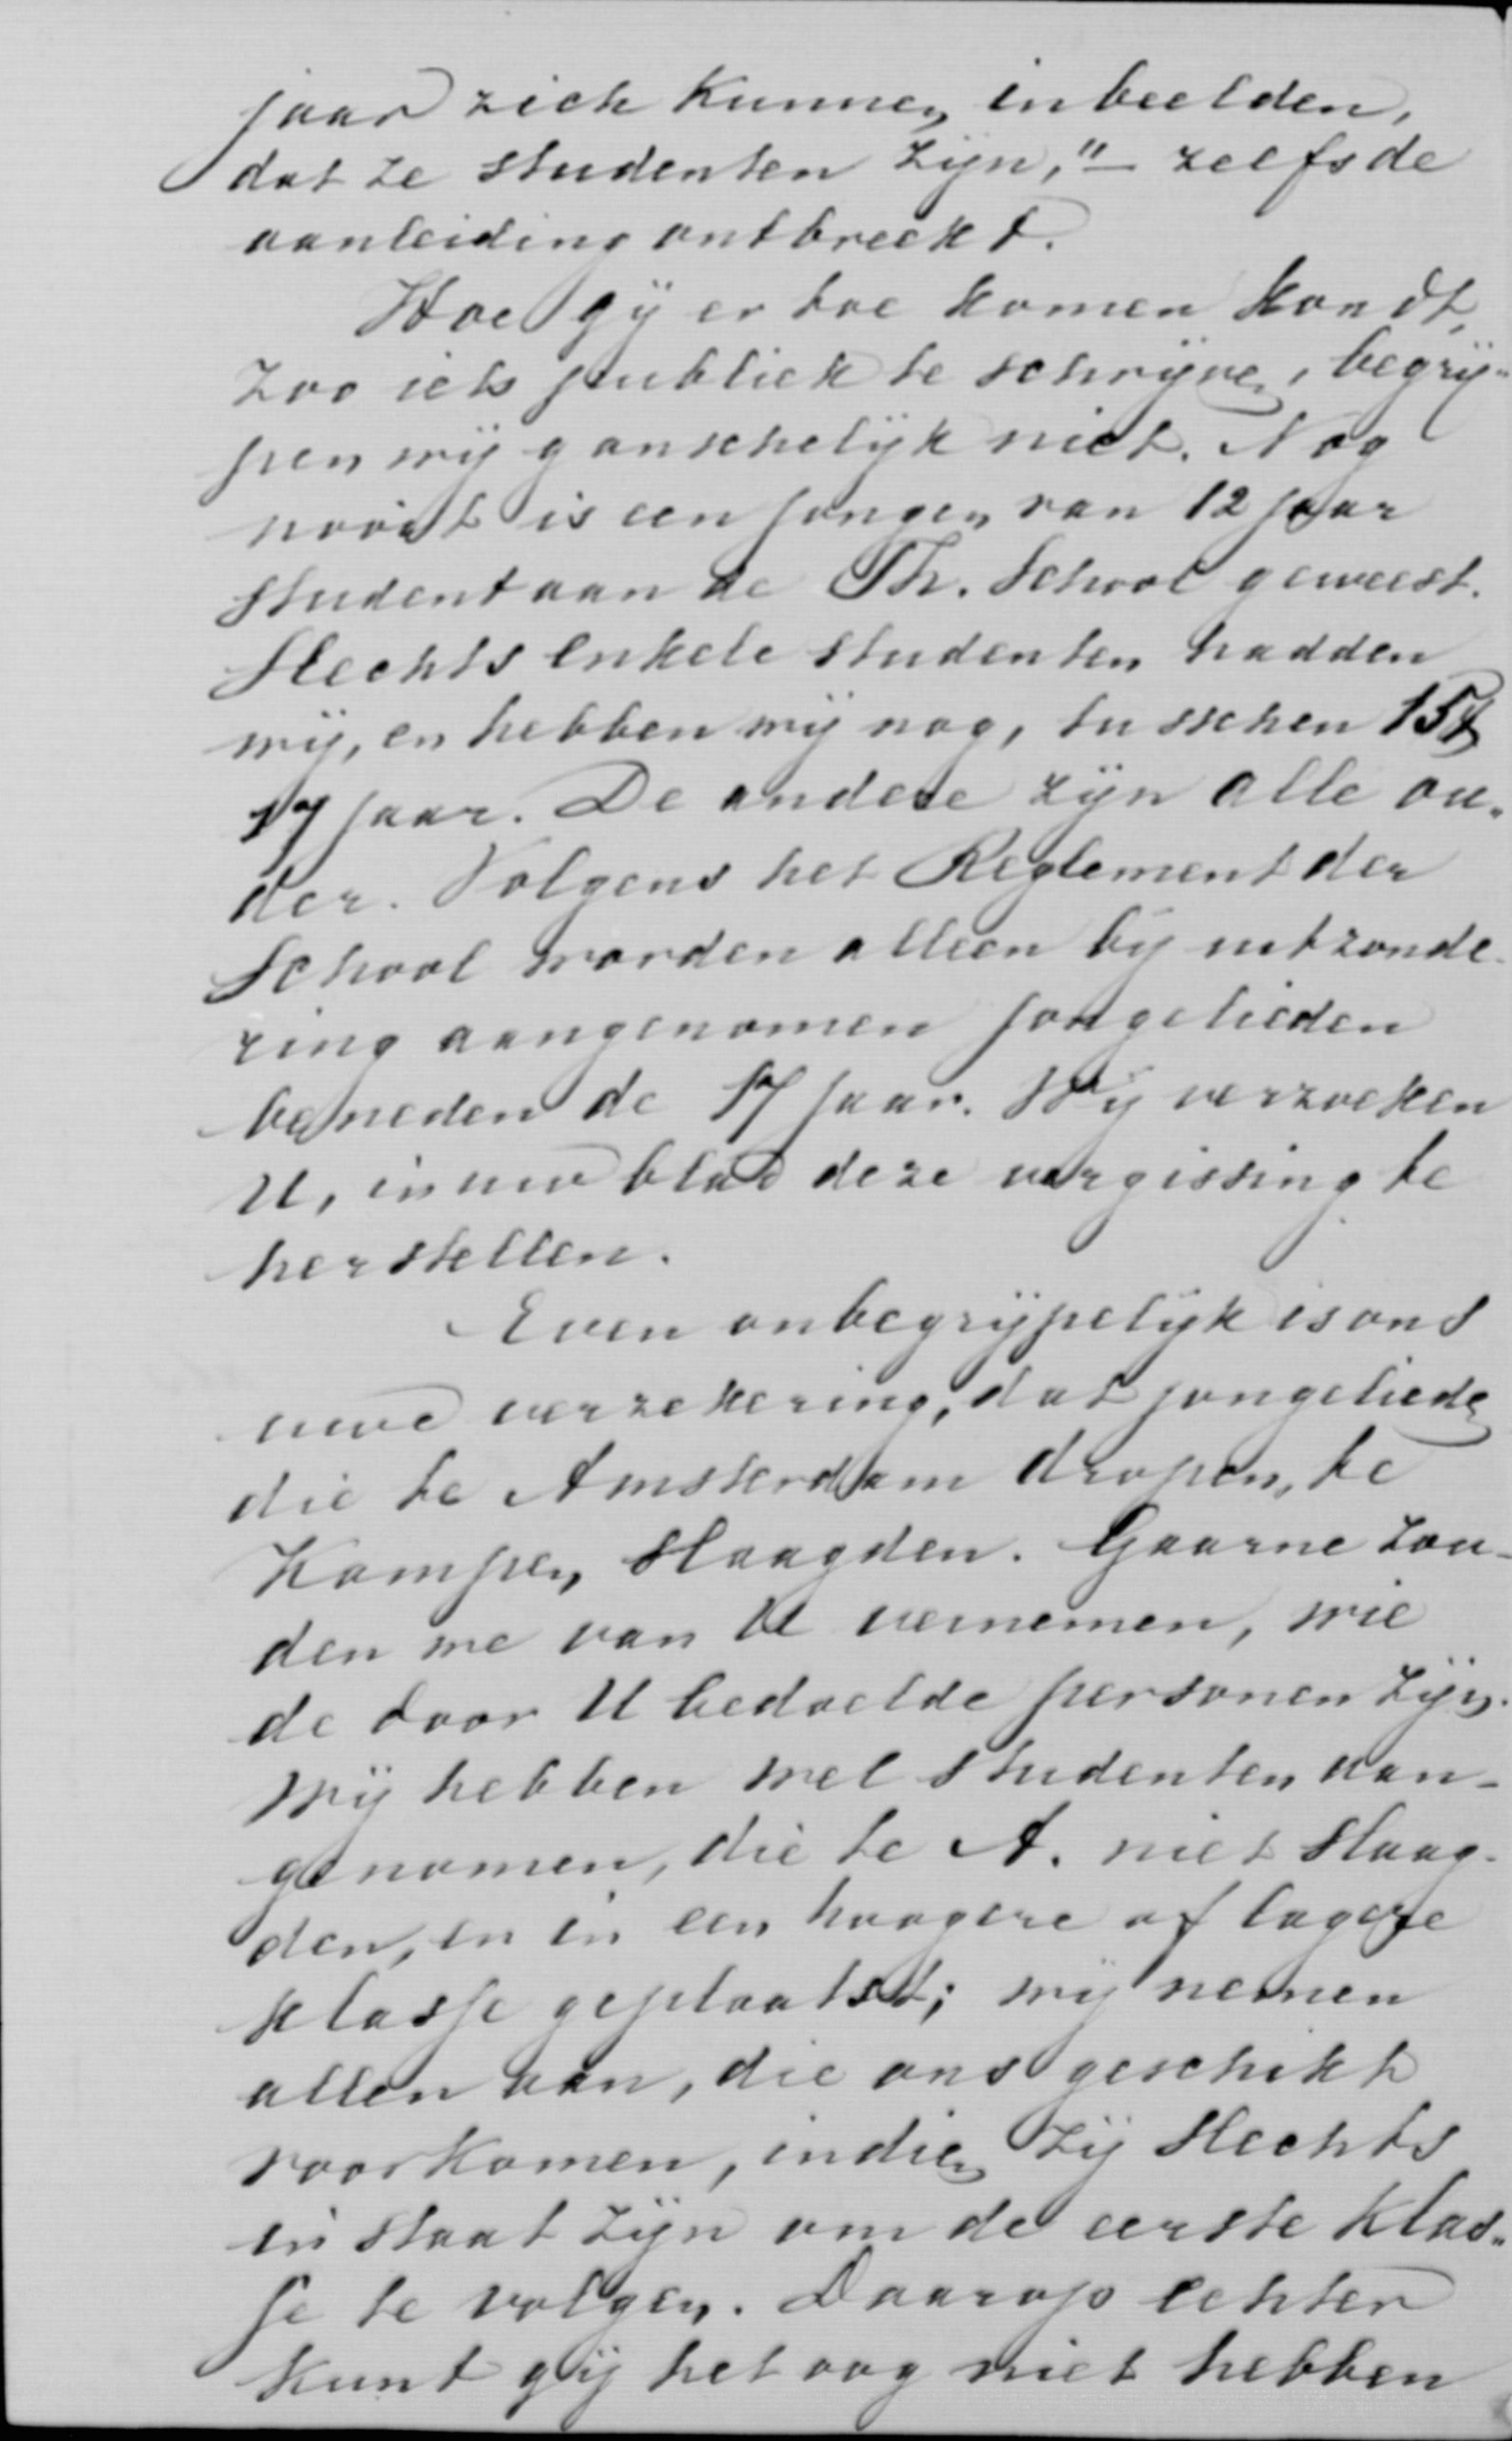 jaar zich kunnen inbeelden,
dat ze studenten zijn," – zelfs de
aanleiding ontbreekt.
Hoe gij er toe komen kondt,
zoo iets publiek te schrijven, begrij-
pen wij ganschelijk niet. Nog
nooit is een jongen van 12 jaar
student aan de Th. School geweest.
Slechts enkele studenten hadden
wij, en hebben wij nog, tusschen 15 &
17 jaar. De andere zijn alle ou-
der. Volgens het Reglement der
School worden alleen bij uitzonde-
ring aangenomen jongelieden
beneden de 17 jaar. Wij verzoeken
U, in uw blad deze vergissing te
herstellen.
Even onbegrijpelijk is ons
uwe verzekering, dat jongelieden
die te Amsterdam dropen, te
Kampen slaagden. Gaarne zou-
den we van U vernemen, wie
de door U bedoelde personen zijn.
Wij hebben wel studenten aan-
genomen, die te A. niet slaag-
den, en in een hoogere of lagere
klasse geplaatst; wij nemen
allen aan, die ons geschikt
voorkomen, indien zij slechts
in staat zijn om de eerste klas-
se te volgen. Daarop echter
kunt gij het oog niet hebben